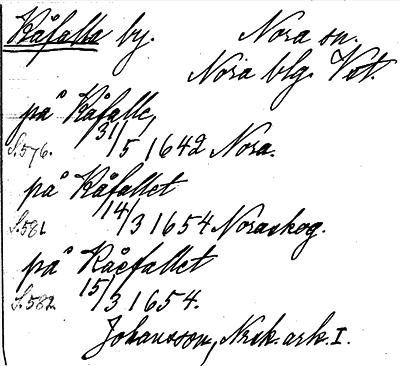 Kåfalla by. Nora sn.
Nora blg. Vst.
på Kåfalle,
S. 576. 31/5 1642 Nora.
på Kåfallet
S. 581 14/3 1654 Noraskog.
på Kåefallet
S. 582. 15/3 1654.
Johansson, Nrsk. ark. I.